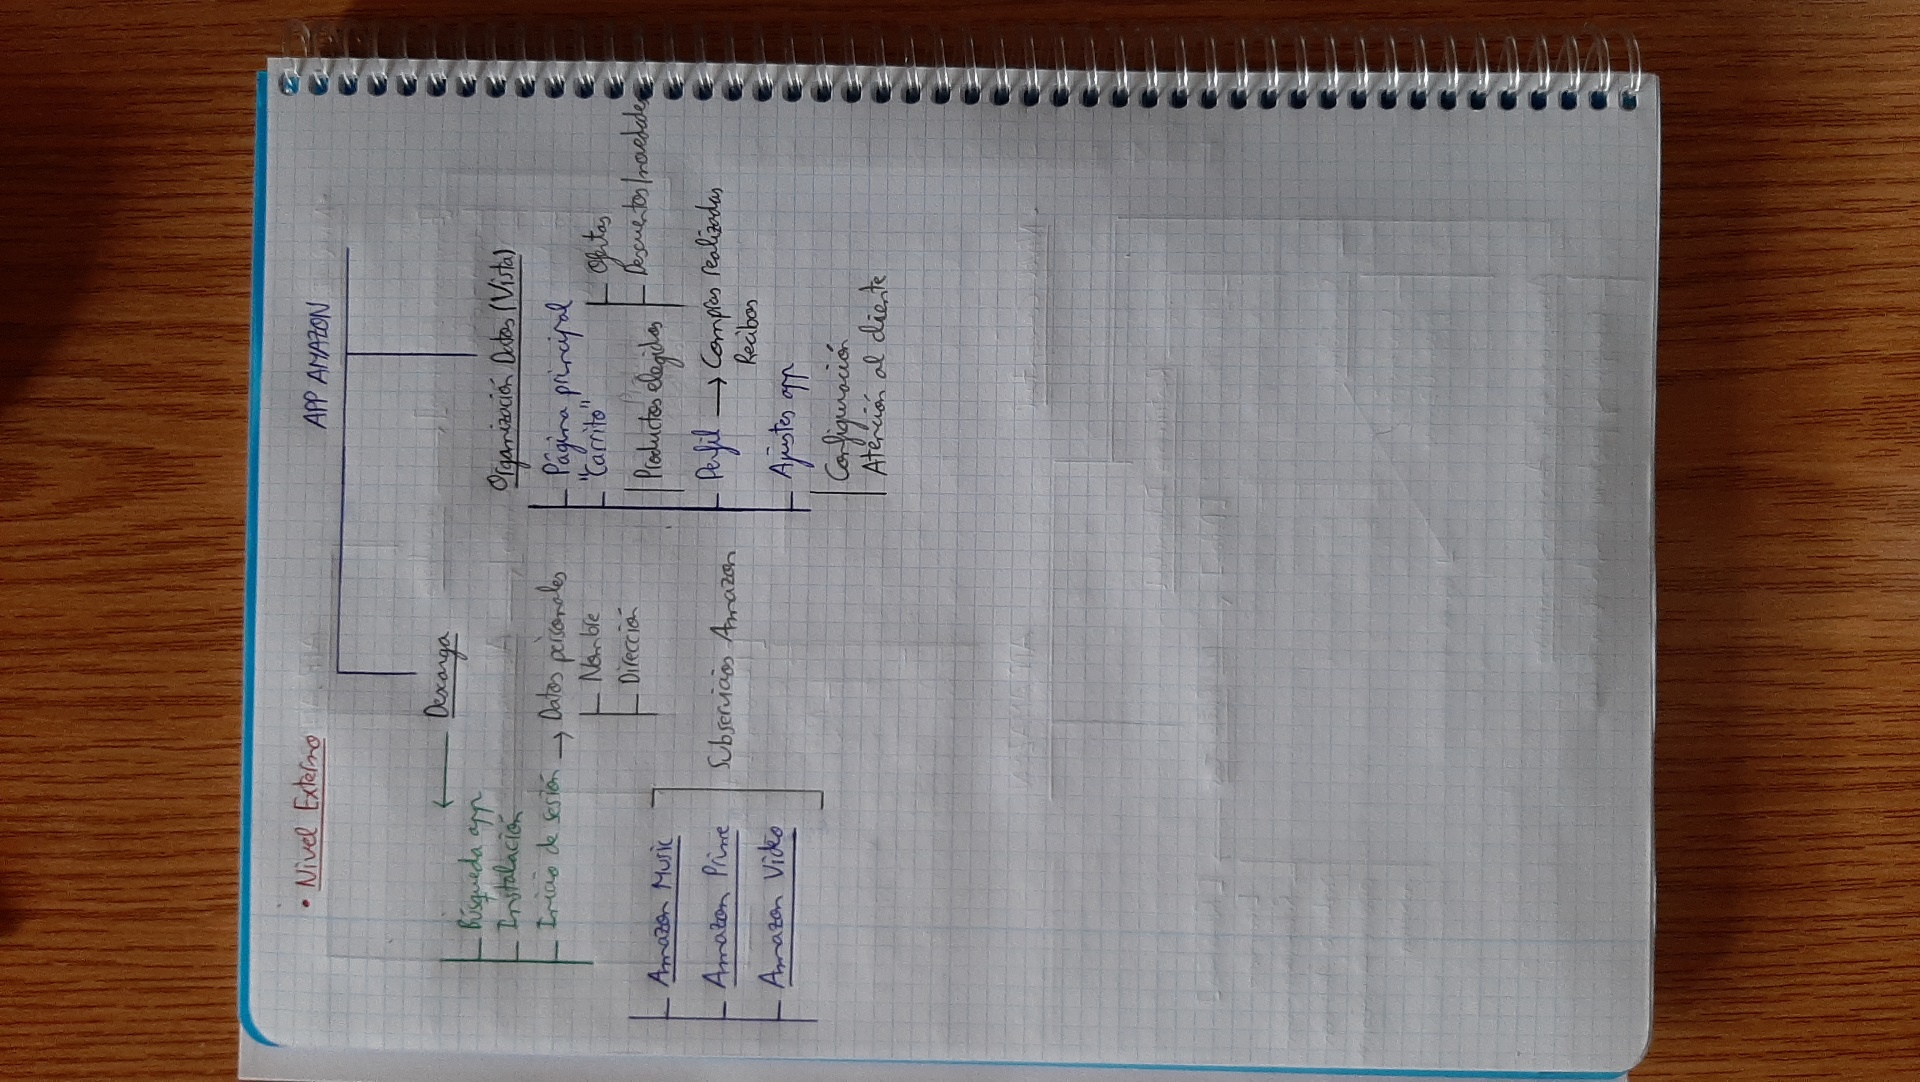 • Nivel Externo
APP AMAZON
Descarga
Búsqueda app
Instalación
Inicio de sesión → Datos personales
Nombre
Dirección
Amazon Music
Amazon Prime
Amazon Video
Subservicios Amazon
Organización Datos (Vista)
Página principal
"Carrito"
Productos elegidos
Ofertas
Descuentos/novedades
Perfil → Compras realizadas
Recibos
Ajustes app
Configuración
Atención al cliente